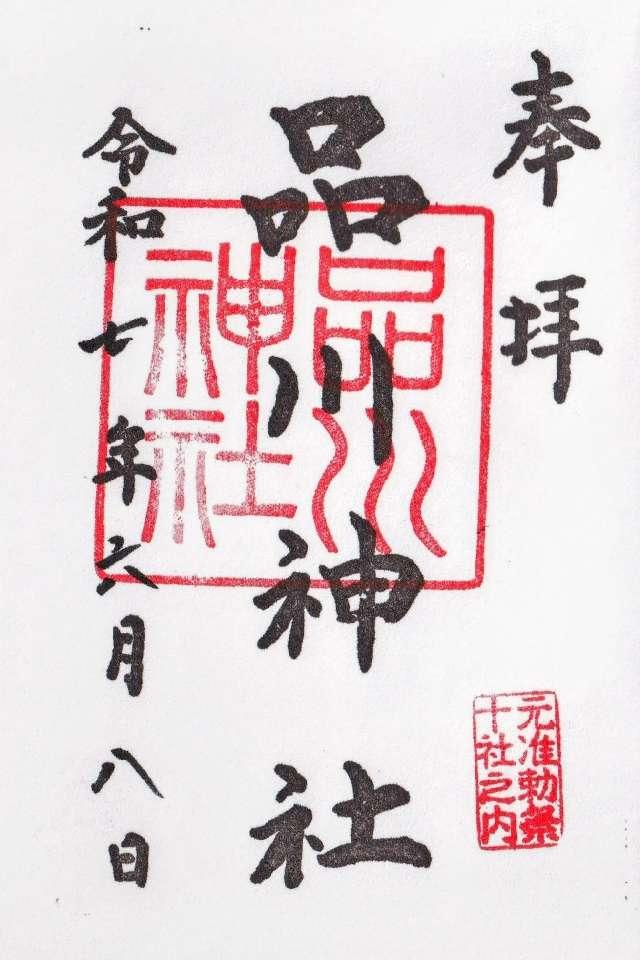 奉拝
品川神社
令和七年六月八日
品川
神社
元准勅祭
十社之内